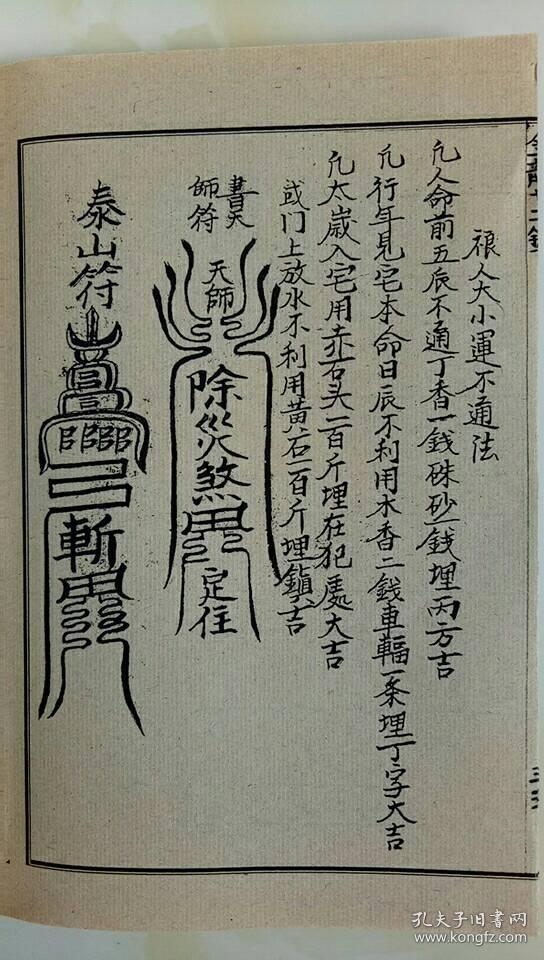 禳人大小運不通法
凡人命前五辰不通丁香一錢硃砂一錢埋丙方吉
凡行年見宅本命日辰不利用木香二錢車輻一条埋丁字大吉
凡太歲入宅用赤石头一百斤埋在犯處大吉
或门上放水不利用黄石一百斤埋鎮吉
書天
師符
天師
除災煞
定住
泰山符
斬
孔夫子旧书网
www.kongfz.com